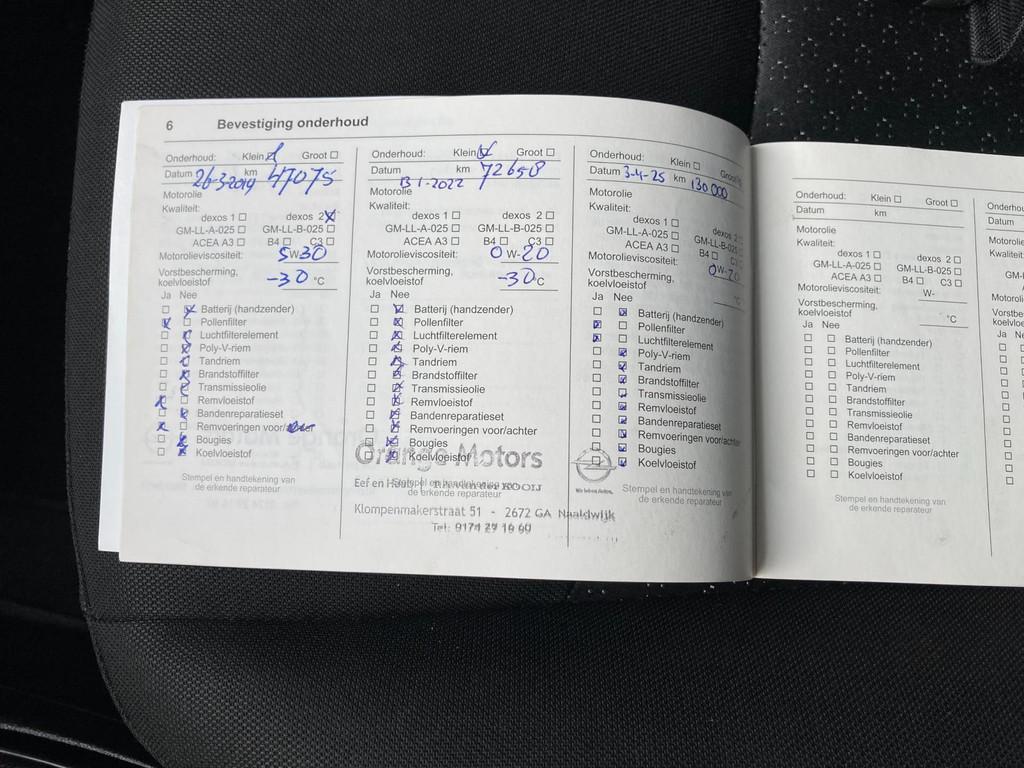 6 Bevestiging onderhoud
Onderhoud: Klein Groot
Datum 26-3-2019 km 47075
Motorolie
Kwaliteit:
dexos 1 dexos 2
GM-LL-A-025 GM-LL-B-025
ACEA A3 B4 C3
Motorolieviscositeit: 5W30
Vorstbescherming,
koelvloeistof -30 °C
Ja Nee
Batterij (handzender)
Pollenfilter
Luchtfilterelement
Poly-V-riem
Tandriem
Brandstoffilter
Transmissieolie
Remvloeistof
Bandenreparatieset
Remvoeringen voor/achter
Bougies
Koelvloeistof
Stempel en handtekening van
de erkende reparateur
Onderhoud: Klein Groot
Datum km 72658
13 1-2022
Motorolie
Kwaliteit:
dexos 1 dexos 2
GM-LL-A-025 GM-LL-B-025
ACEA A3 B4 C3
Motorolieviscositeit: 0W-20
Vorstbescherming,
koelvloeistof -30 °C
Ja Nee
Batterij (handzender)
Pollenfilter
Luchtfilterelement
Poly-V-riem
Tandriem
Brandstoffilter
Transmissieolie
Remvloeistof
Bandenreparatieset
Remvoeringen voor/achter
Bougies
Koelvloeistof
Orange Motors
Stempel en handtekening van
de erkende reparateur
Klompenmakerstraat 51 - 2672 GA Naaldwijk
Tel: 0174 29 16 60
Onderhoud: Klein Groot
Datum 3-4-25 km 130000
Motorolie
Kwaliteit:
dexos 1 dexos 2
GM-LL-A-025 GM-LL-B-025
ACEA A3 B4 C3
Motorolieviscositeit: 0W-20
Vorstbescherming,
koelvloeistof °C
Ja Nee
Batterij (handzender)
Pollenfilter
Luchtfilterelement
Poly-V-riem
Tandriem
Brandstoffilter
Transmissieolie
Remvloeistof
Bandenreparatieset
Remvoeringen voor/achter
Bougies
Koelvloeistof
Stempel en handtekening van
de erkende reparateur
Onderhoud: Klein Groot
Datum km
Motorolie
Kwaliteit:
dexos 1 dexos 2
GM-LL-A-025 GM-LL-B-025
ACEA A3 B4 C3
Motorolieviscositeit: W-
Vorstbescherming,
koelvloeistof °C
Ja Nee
Batterij (handzender)
Pollenfilter
Luchtfilterelement
Poly-V-riem
Tandriem
Brandstoffilter
Transmissieolie
Remvloeistof
Bandenreparatieset
Remvoeringen voor/achter
Bougies
Koelvloeistof
Stempel en handtekening van
de erkende reparateur
Datum